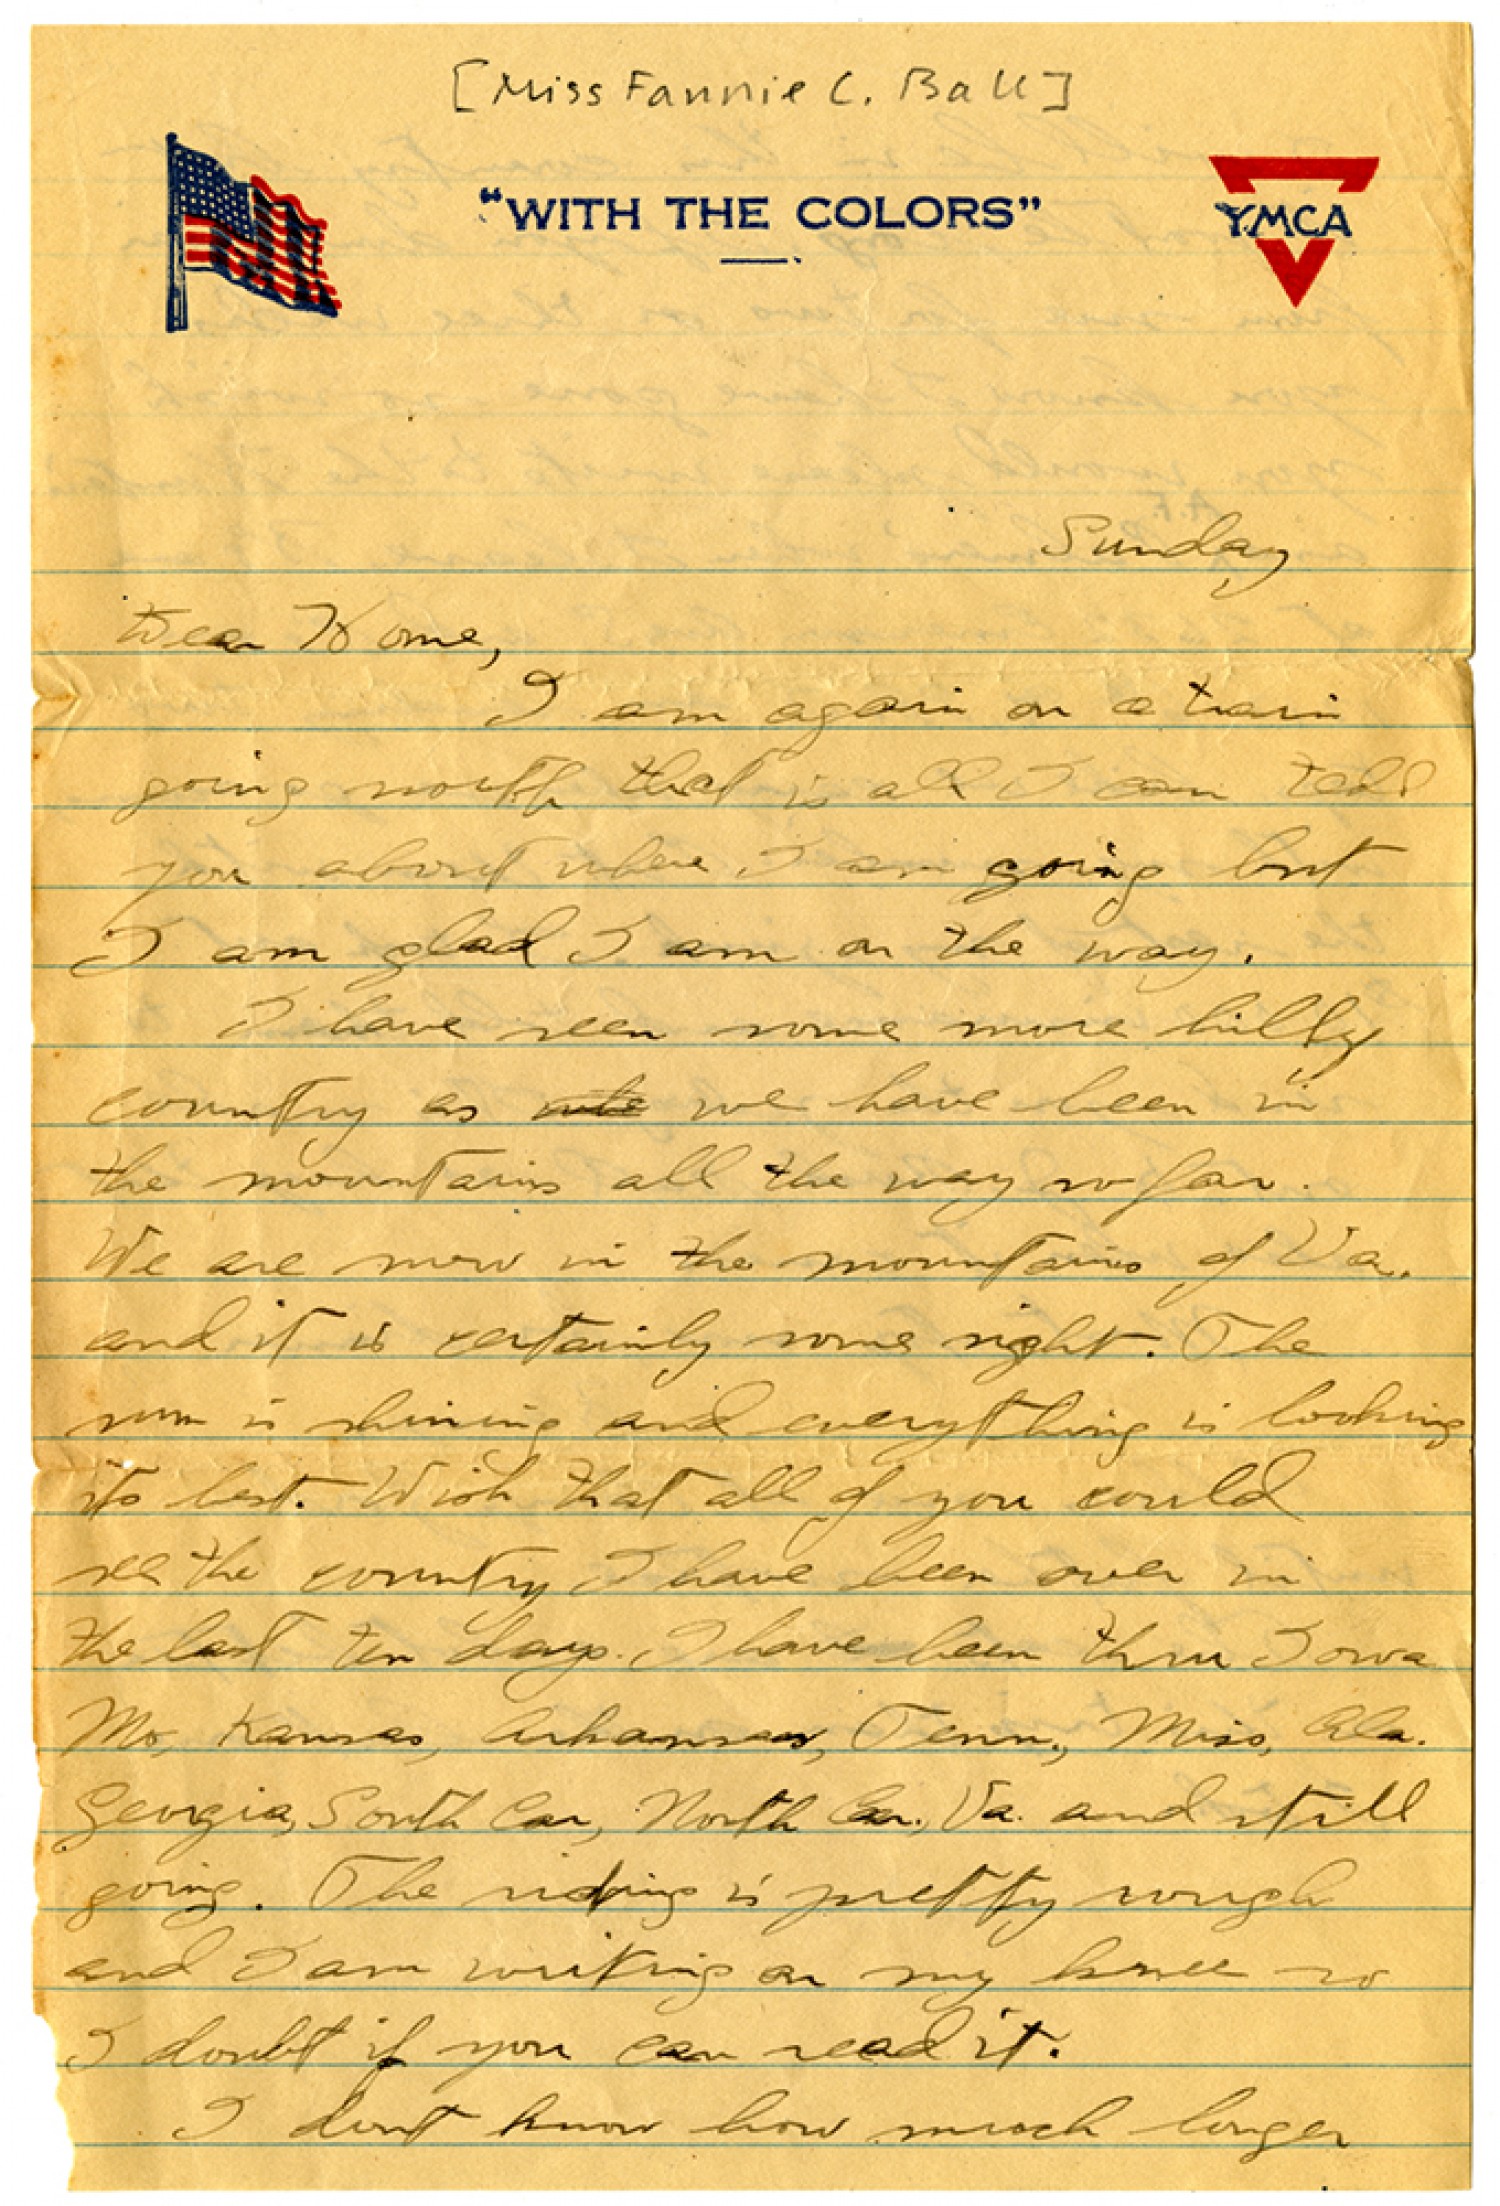 [Miss Fannie C. Ball]
"WITH THE COLORS"
YMCA
Sunday
Dear Home,
I am again on a train
going north that is all I can tell
you about where I am going but
I am glad I am on the way.
I have seen some more hilly
country as we have been in
the mountains all the way so far.
We are now in the mountains of Va.
and it is certainly some sight. The
sun is shining and everything is looking
its best. Wish that all of you could
see the country I have been over in
the last ten days. I have been thru Iowa
Mo, Kansas, Arkansas, Tenn., Miss, Ala.
Georgia, South Car, North Car., Va. and still
going. The riding is pretty rough
and I am writing on my knee so
I doubt if you can read it.
I dont know how much longer